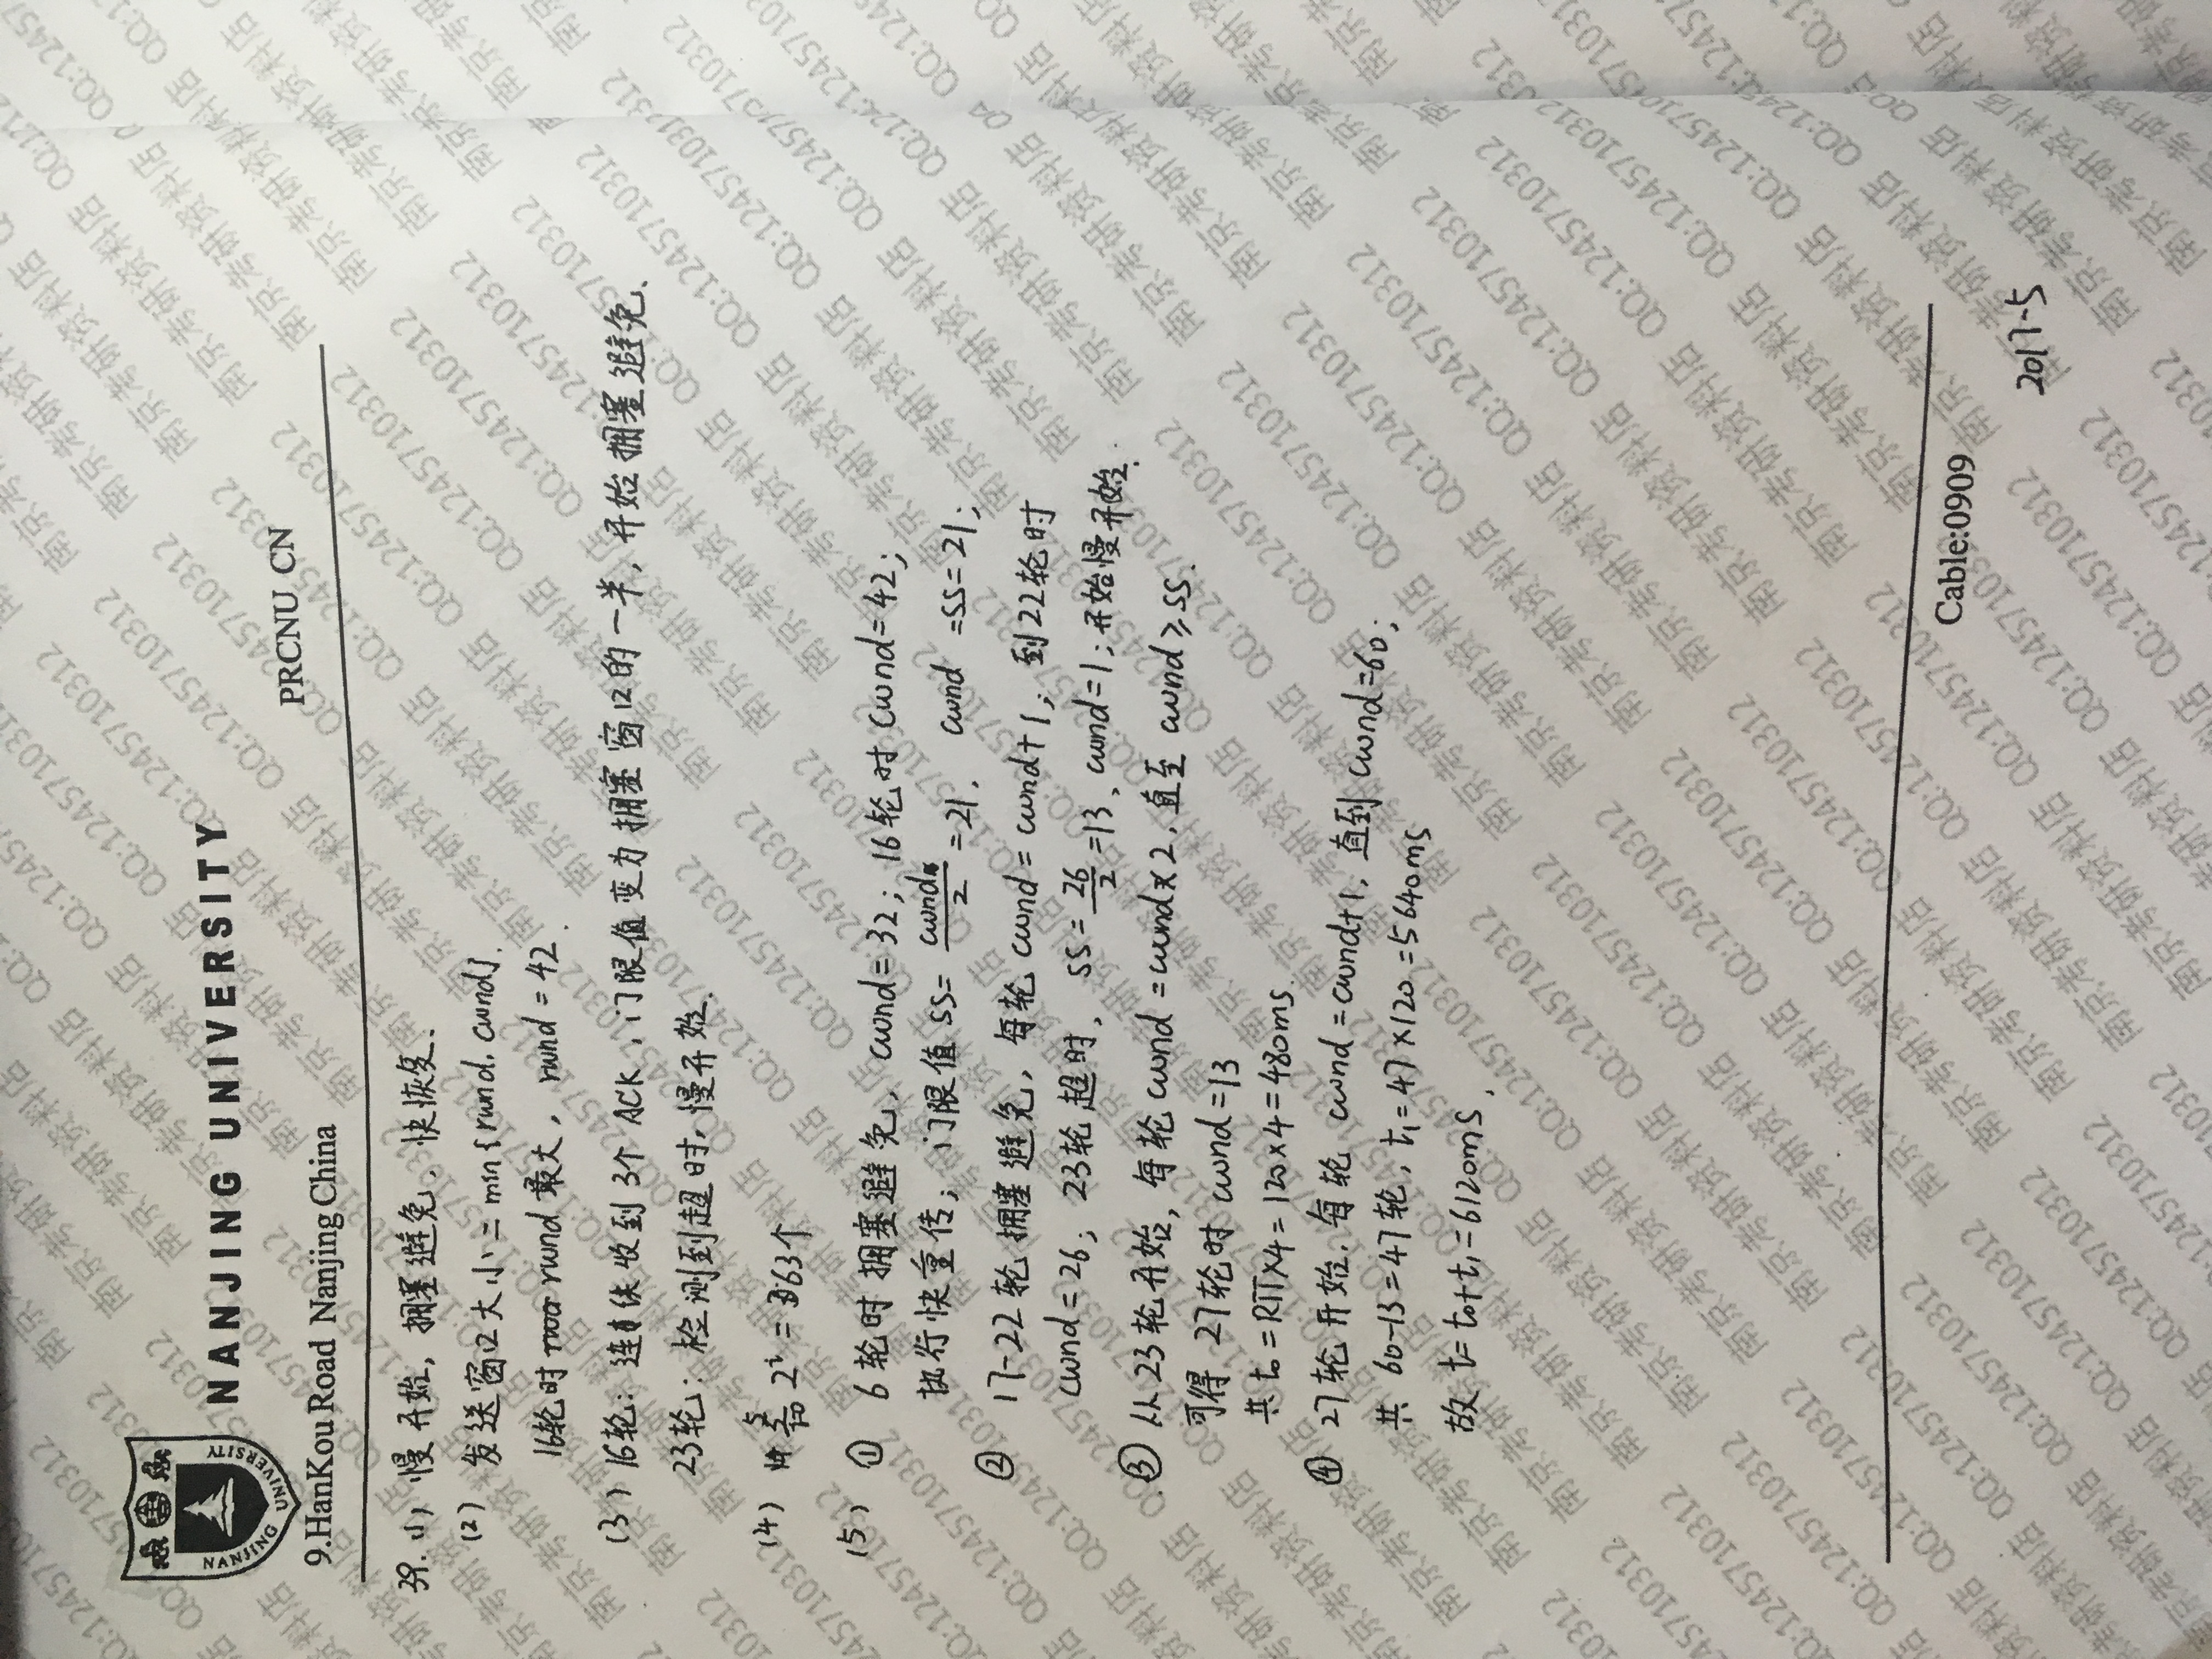 NANJING UNIVERSITY
NANJING UNIVERSITY
9.HanKou Road Nanjing China PRCNU CN
39. (1) 慢开始, 拥塞避免、快恢复.
(2) 发送窗口大小 = min{rwnd, cwnd}.
16轮时 rwnd 最大, rwnd = 42.
(3) 16轮: 连续收到3个ACK, 门限值变为拥塞窗口的一半, 开始拥塞避免.
23轮: 检测到超时, 慢开始.
(4) 2^i = 63个
(5) ① 6轮时拥塞避免, cwnd=32; 16轮时 cwnd=42;
执行快重传; 门限值 ss= cwnd/2 = 21. cwnd =ss=21;
② 17-22轮拥塞避免, 每轮 cwnd = cwnd+1; 到22轮时
cwnd=26; 23轮超时, ss = 26/2 =13, cwnd=1; 开始慢开始.
③ 从23轮开始, 每轮 cwnd = cwnd×2, 直至 cwnd ≥ ss.
可得 27轮时 cwnd=13
共 t0 = RTT×4 = 120×4 = 480ms
④ 27轮开始, 每轮 cwnd = cwnd+1, 直到 cwnd=60;
共 60-13=47轮, t1 = 47×120 = 5640ms
故 t = t0+t1 = 6120ms.
Cable:0909
2017-5
南京考研资料店 QQ:1245710312